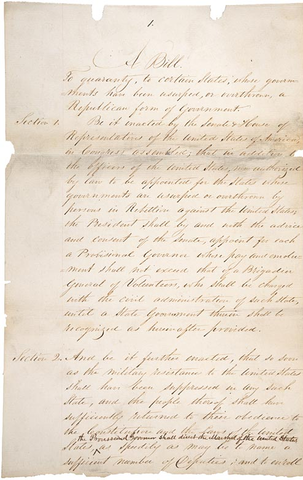 1.
A Bill
To guaranty, to certain States, whose govern-
ments have been usurped, or overthrown, a
Republican form of Government
Section 1. Be it enacted by the Senate & House of
Representatives of the United States of America
in Congress assembled; that in
the Officers of the United States, now authorized
by law to be appointed for the States whose
governments are usurped or overthrown by
persons in Rebellion against the United States,
the President shall by and with the advice
and consent of the Senate, appoint for each
a Provisional Governor whose pay and emolu-
ment shall not exceed that of a Brigadier
General of Volunteers, who shall be charged
with the civil administration of such State,
until a State Government therein shall be
recognized as hereinafter provided.
Section 2. And be it further enacted, that so soon
as the military resistance to the United States
shall have been suppressed in any such
State, and the people thereof shall have
sufficiently returned to their obedience to
the Constitution and the Laws of the United
the Provisional Governor shall direct the Marshal of the United States
States, as speedily as may be to name a
sufficient number of Deputies; and to enroll